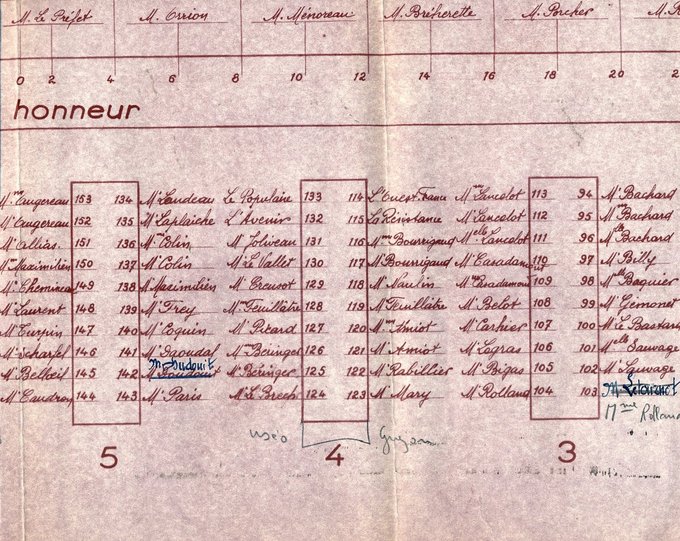 M. Le Préfet M. Orrion M. Ménoreau M. Bréherette M. Porcher
0 2 4 6 8 10 12 14 16 18 20
honneur
Mme Augereau 153 134 Mr Landeau Le Populaire 133 114 L'Ouest-France Mme Lancelot 113 94 Mr Bachard
Mr Augereau 152 135 Mr Laplaiche L'Avenir 132 115 La Résistance Mr Lancelot 112 95 Mme Bachard
Mr Allias. 151 136 Mme Colin Mr Joliveau 131 116 Mme Bourrigaud Melle Lancelot 111 96 Melle Bachard
Mme Maximilien 150 137 Mr Colin Mr Le Vallet 130 117 Mr Bourrigaud Mr Casadamont 110 97 Mr Billy
149 138 Mr Maximilien Mr Creusot 129 118 Mr Naulin 109 98 Melle Baguier
Mr Laurent 148 139 Mr Frey Mme Feuillâtre 128 119 Mr Feuillâtre Mr Belot 108 99 Mr Gémonet
Mr Turpin 147 140 Mr Coquin Mr Pitard 127 120 Mme Amiot Mr Carhier 107 100 Mr Le Bastard
Mr Scharfel 146 141 Mr Daoudal Mme Béringer 126 121 Mr Amiot Mr Legras 106 101 Melle Sauvage
M. Oudouit
Mr Belloeil 145 142 Mr Béringer 125 122 Mr Rabillier Mr Bigas 105 102 Mr Sauvage
144 143 Mr Paris Mr Le Brech 124 123 Mr Mary Mr Rolland 104 103
Mme Rolland
5 4 3